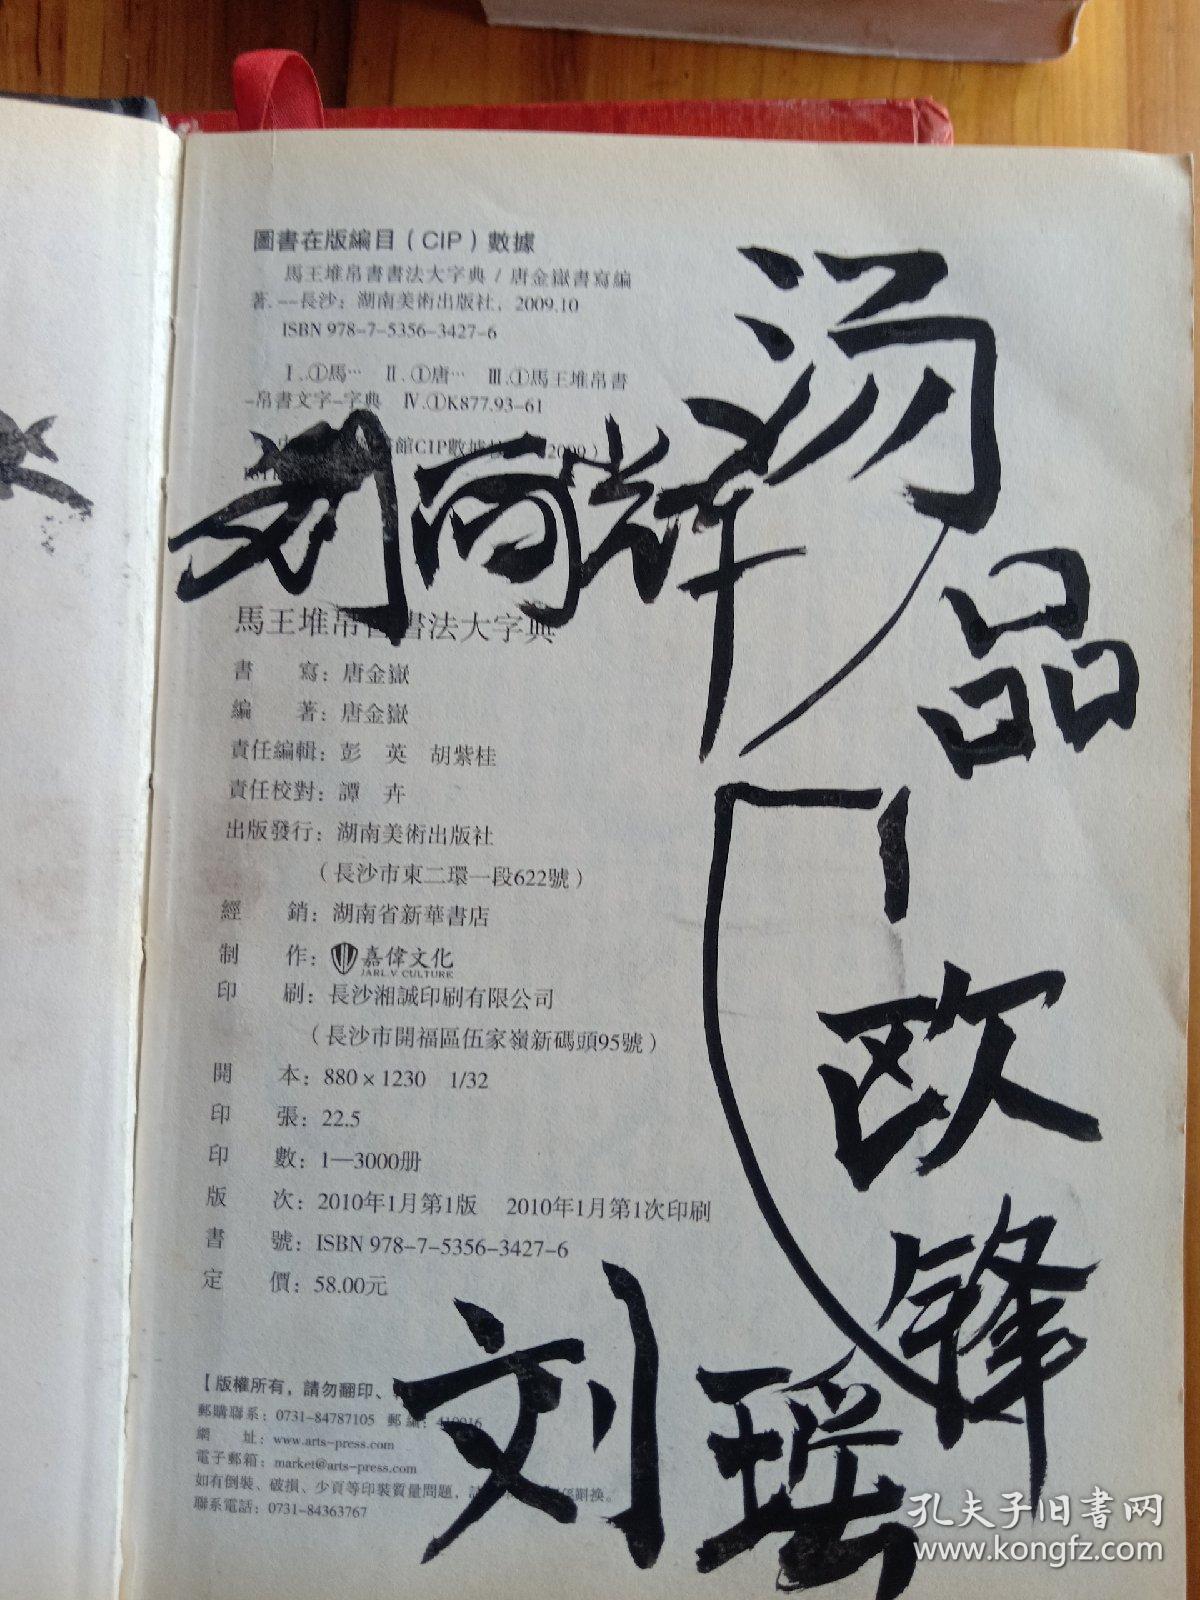 圖書在版編目（CIP）數據
馬王堆帛書書法大字典 / 唐金嶽書寫編
著. —長沙：湖南美術出版社，2009.10
ISBN 978-7-5356-3427-6
Ⅰ.①馬… Ⅱ.①唐… Ⅲ.①馬王堆帛書
-帛書文字-字典 Ⅳ.①K877.93-61
館CIP數據
汤品
刘
馬王堆帛書書法大字典
書 寫：唐金嶽
編 著：唐金嶽
責任編輯：彭 英 胡紫桂
責任校對：譚 卉
出版發行：湖南美術出版社
（長沙市東二環一段622號）
經 銷：湖南省新華書店
制 作：嘉偉文化
JARL.V CULTURE
印 刷：長沙湘誠印刷有限公司
（長沙市開福區伍家嶺新碼頭95號）
開 本：880×1230 1/32
印 張：22.5
印 數：1—3000册
版 次：2010年1月第1版 2010年1月第1次印刷
書 號：ISBN 978-7-5356-3427-6
定 價：58.00元
欧锋
刘瑶
【版權所有，請勿翻印、
郵購聯系：0731-84787105 郵編：410016
網 址：www.arts-press.com
電子郵箱：market@arts-press.com
如有倒裝、破損、少頁等印裝質量問題，
聯系電話：0731-84363767
孔夫子旧书网
www.kongfz.com